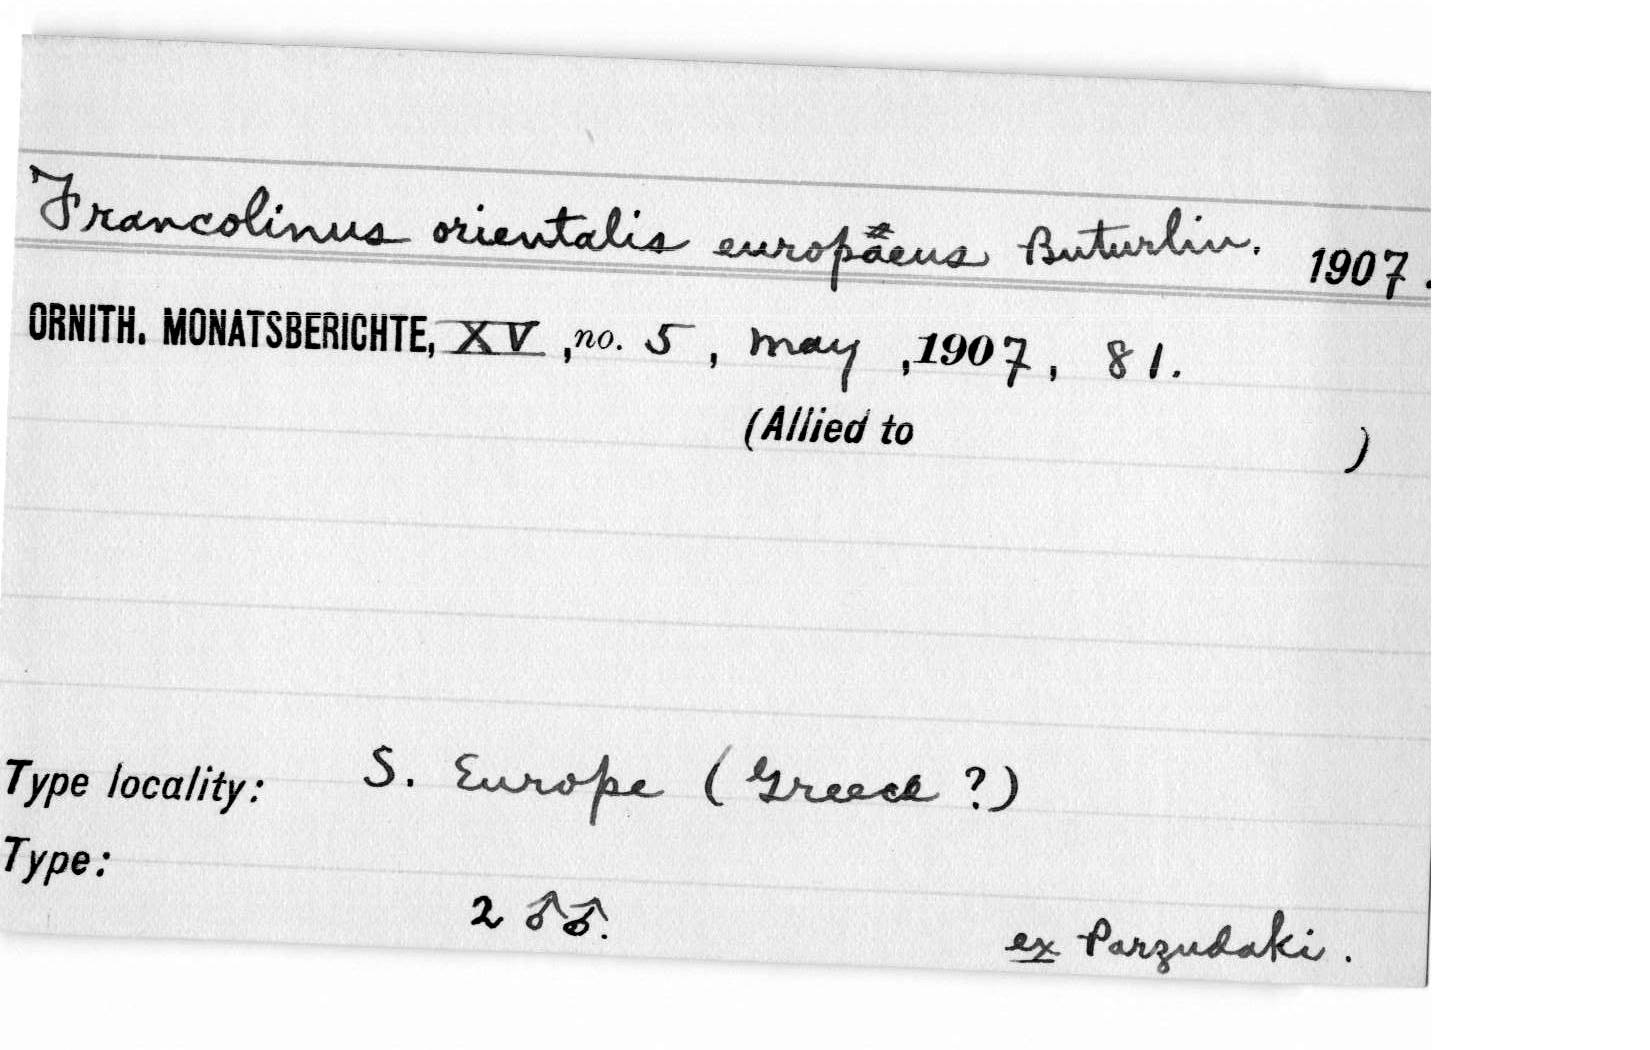 Francolinus orientalis europäeus Buturlin. 1907.
ORNITH. MONATSBERICHTE, XV, no. 5, May, 1907, 81.
(Allied to )
Type locality: S. Europe (Greece ?)
Type:
2 ♂♂. ex Parzudaki.